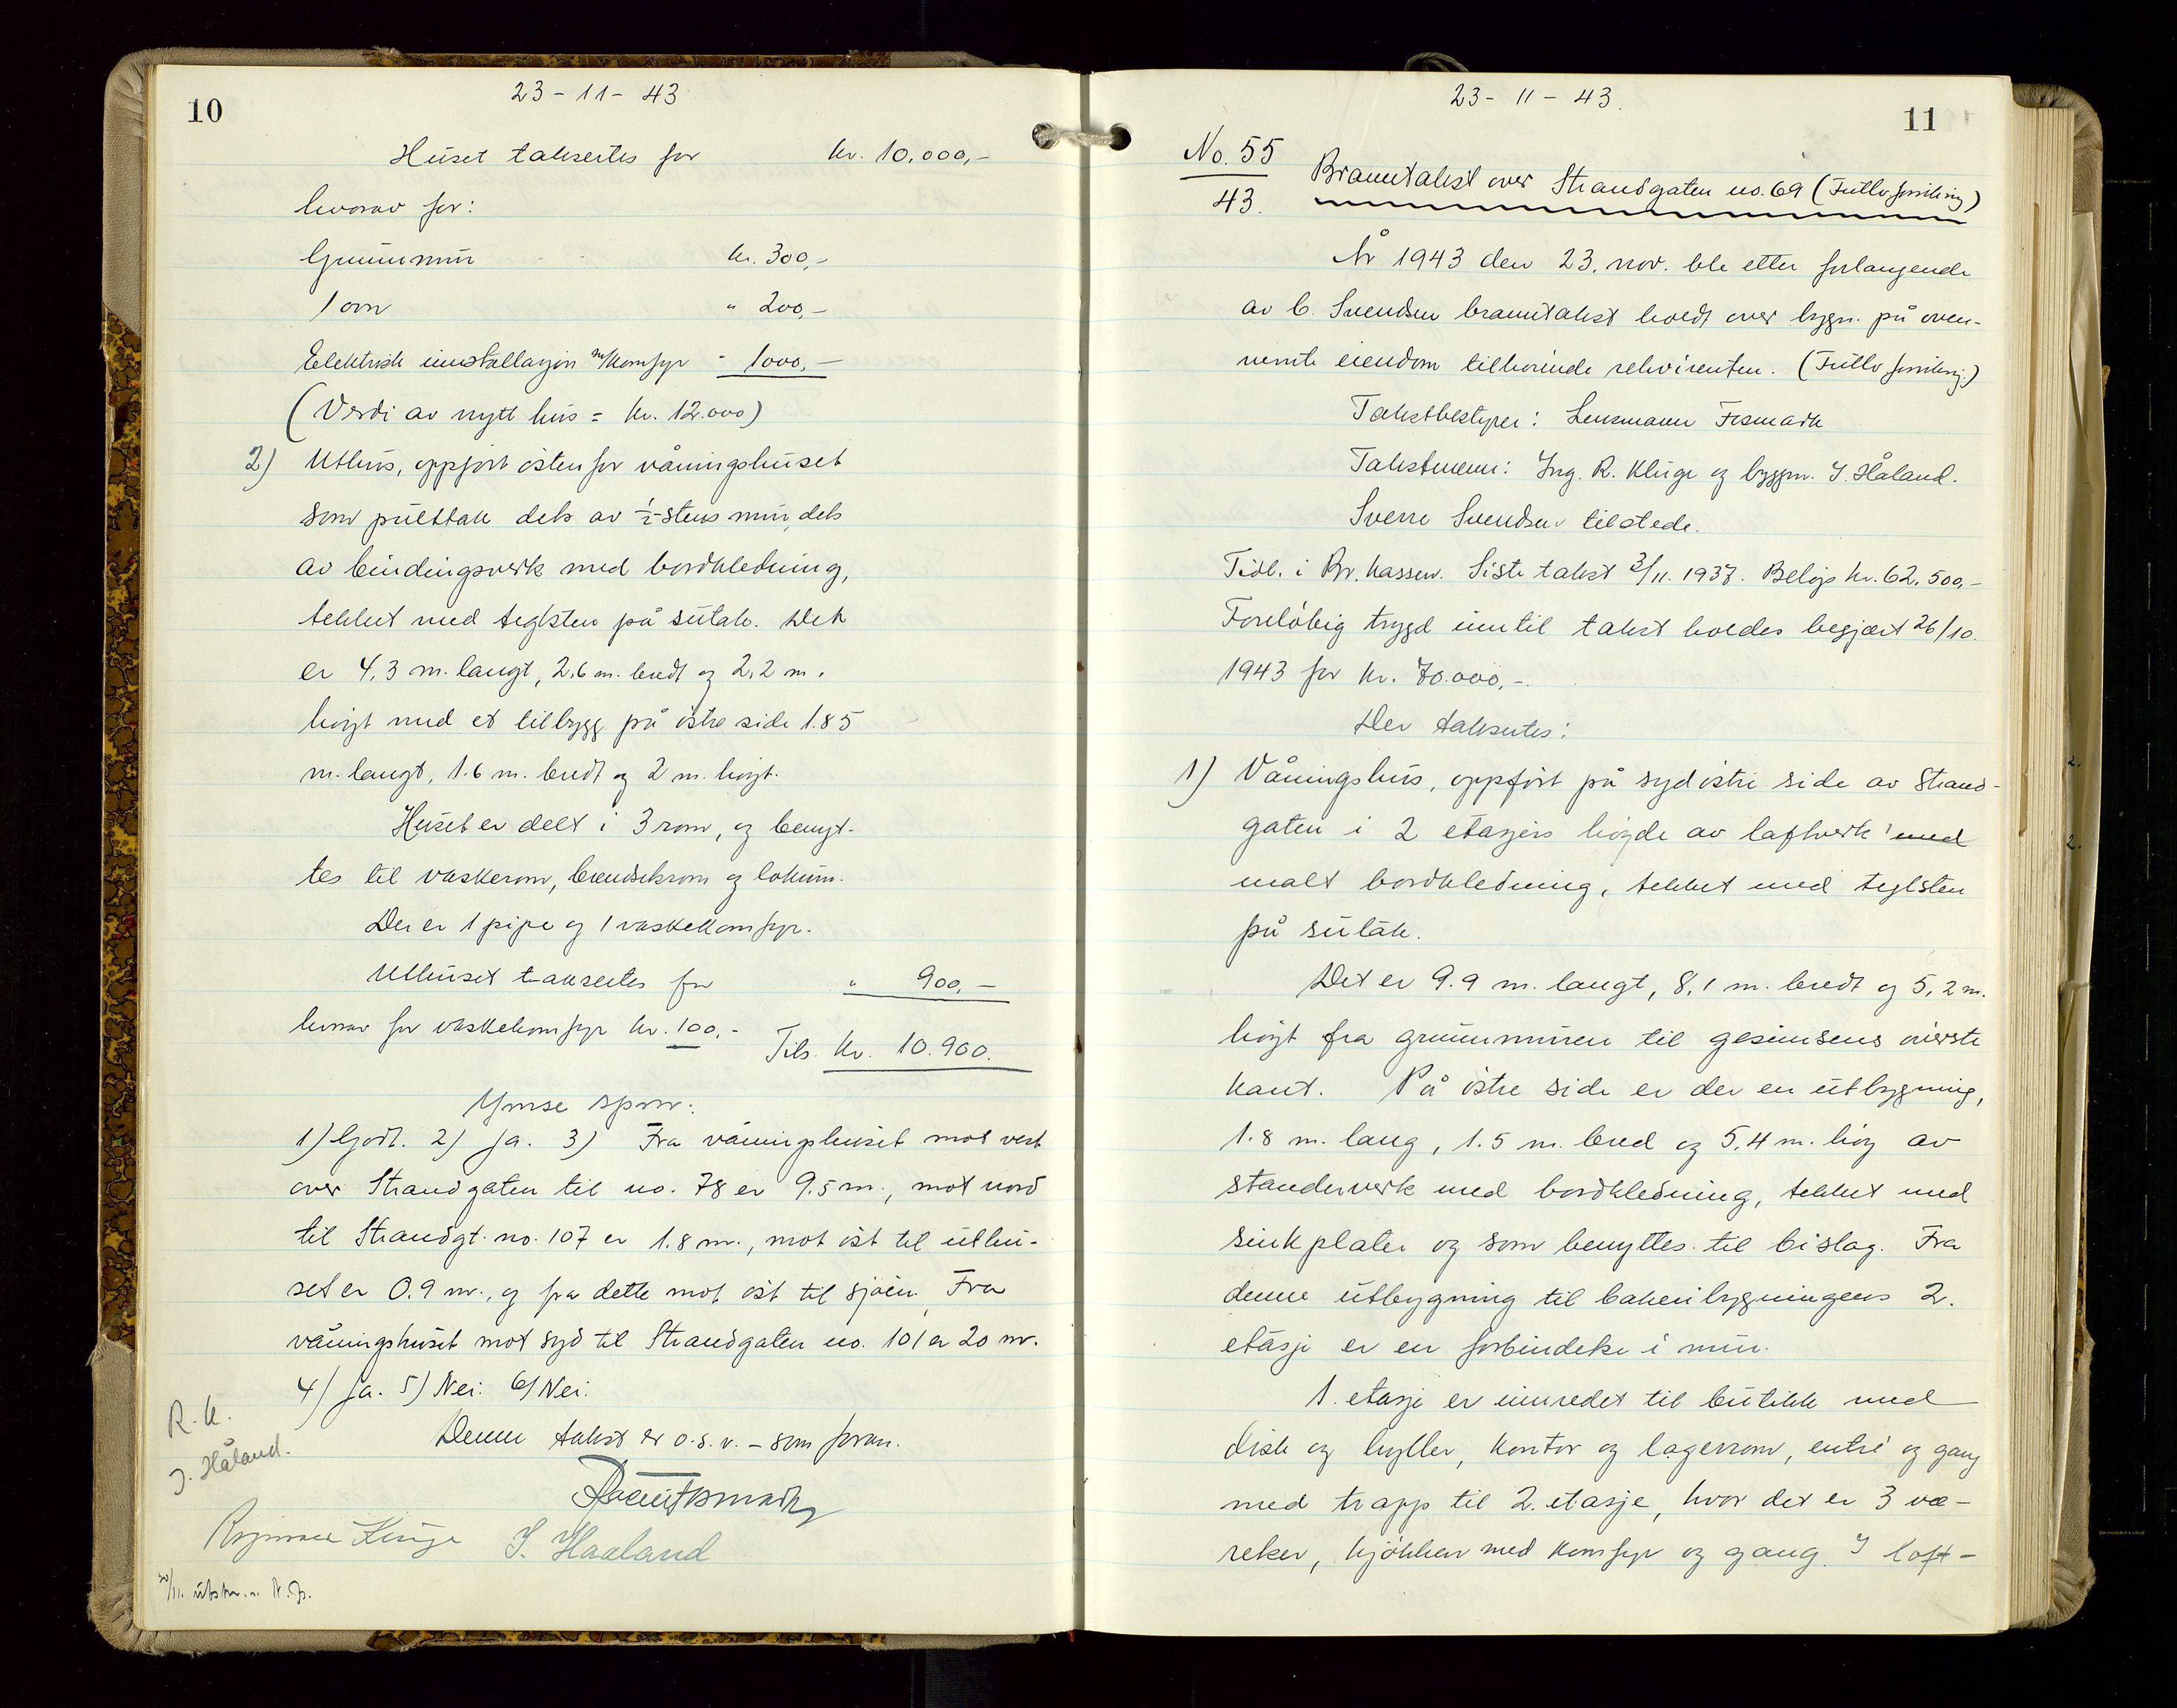 10
23-11-43
Huset takseres for kr. 10.000,-
hvorav for:
Grunnmur kr. 300,-
1 ovn " 200,-
Elektrisk innstallasjon m/komfyr " 1000,-
(Verdi av nytt hus = kr. 12.000)
2) Uthus, oppført østenfor våningshuset
som pulttak dels av ½-stens mur, dels
av bindingsverk med bordkledning,
tekket med teglsten på sutak. Det
er 4,3 m. langt, 2,6 m. bredt og 2,2 m.
høyt med et tilbygg på østre side 1.85
m. langt, 1.6 m. bredt og 2 m. høyt.
Huset er delt i 3 rom, og benyt-
tes til vaskerom, brendselsrom og lokum.
Der er 1 pipe og 1 vaskekomfyr.
Uthuset takseres for " 900,-
hvorav for vaskekomfyr kr. 100,-
Tils. kr. 10.900.
Ymse spm:
1) Godt. 2) Ja. 3) Fra våningshuset mot vest
over Strandgaten til no. 78 er 9.5 m., mot nord
til Strandgt. no. 107 er 1.8 m., mot øst til uthu-
set er 0.9 m., og fra dette mot øst til sjøen. Fra
våningshuset mot syd til Strandgaten no. 101 er 20 m.
4) Ja. 5) Nei. 6) Nei.
Denne takst er o.s.v. - som foran.
R.K.
J. Håland.
J. Haaland
30/11. utskr. n. N.Js.
11
23-11-43.
No. 55
43.
Branntakst over Strandgaten no. 69 (Frittv. forsikring)
År 1943 den 23. nov. ble etter forlangende
av C. Svendsen branntakst holdt over bygn. på oven-
nemte eiendom tilhørende rekvirenten. (Frittv. forsikring.)
Takstbestyrer: Lensmann Fosmark
Takstmenn: Ing. R. Kluge og byggm. J. Håland.
Sverre Svendsen tilstede.
Tidl. i Br. kassen. Siste takst 3/11. 1937. Beløp kr. 62.500,-
Foreløbig trygd inntil takst holdes begjært 26/10.
1943 for kr. 70.000,-.
Der takseres:
1) Våningshus, oppført på sydøstre side av Strand-
gaten i 2 etasjers høyde av laftverk med
malt bordkledning, tekket med teglsten
på sutak.
Det er 9.9 m. langt, 8,1 m. bredt og 5,2 m.
høyt fra grunnmuren til gesimsens øverste
kant. På østre side er der en utbygning,
1.8 m. lang, 1.5 m. bred og 5,4 m. høy av
standerverk med bordkledning, tekket med
sinkplater og som benyttes til bislag. Fra
denne utbygning til bakeribygningens 2.
etasje er en forbindelse i mur.
1. etasje er innredet til butikk med
disk og hyller, kontor og lagerrom, entré og gang
med trapp til 2. etasje, hvor det er 3 væ-
relser, kjøkken med komfyr og gang. I loft-